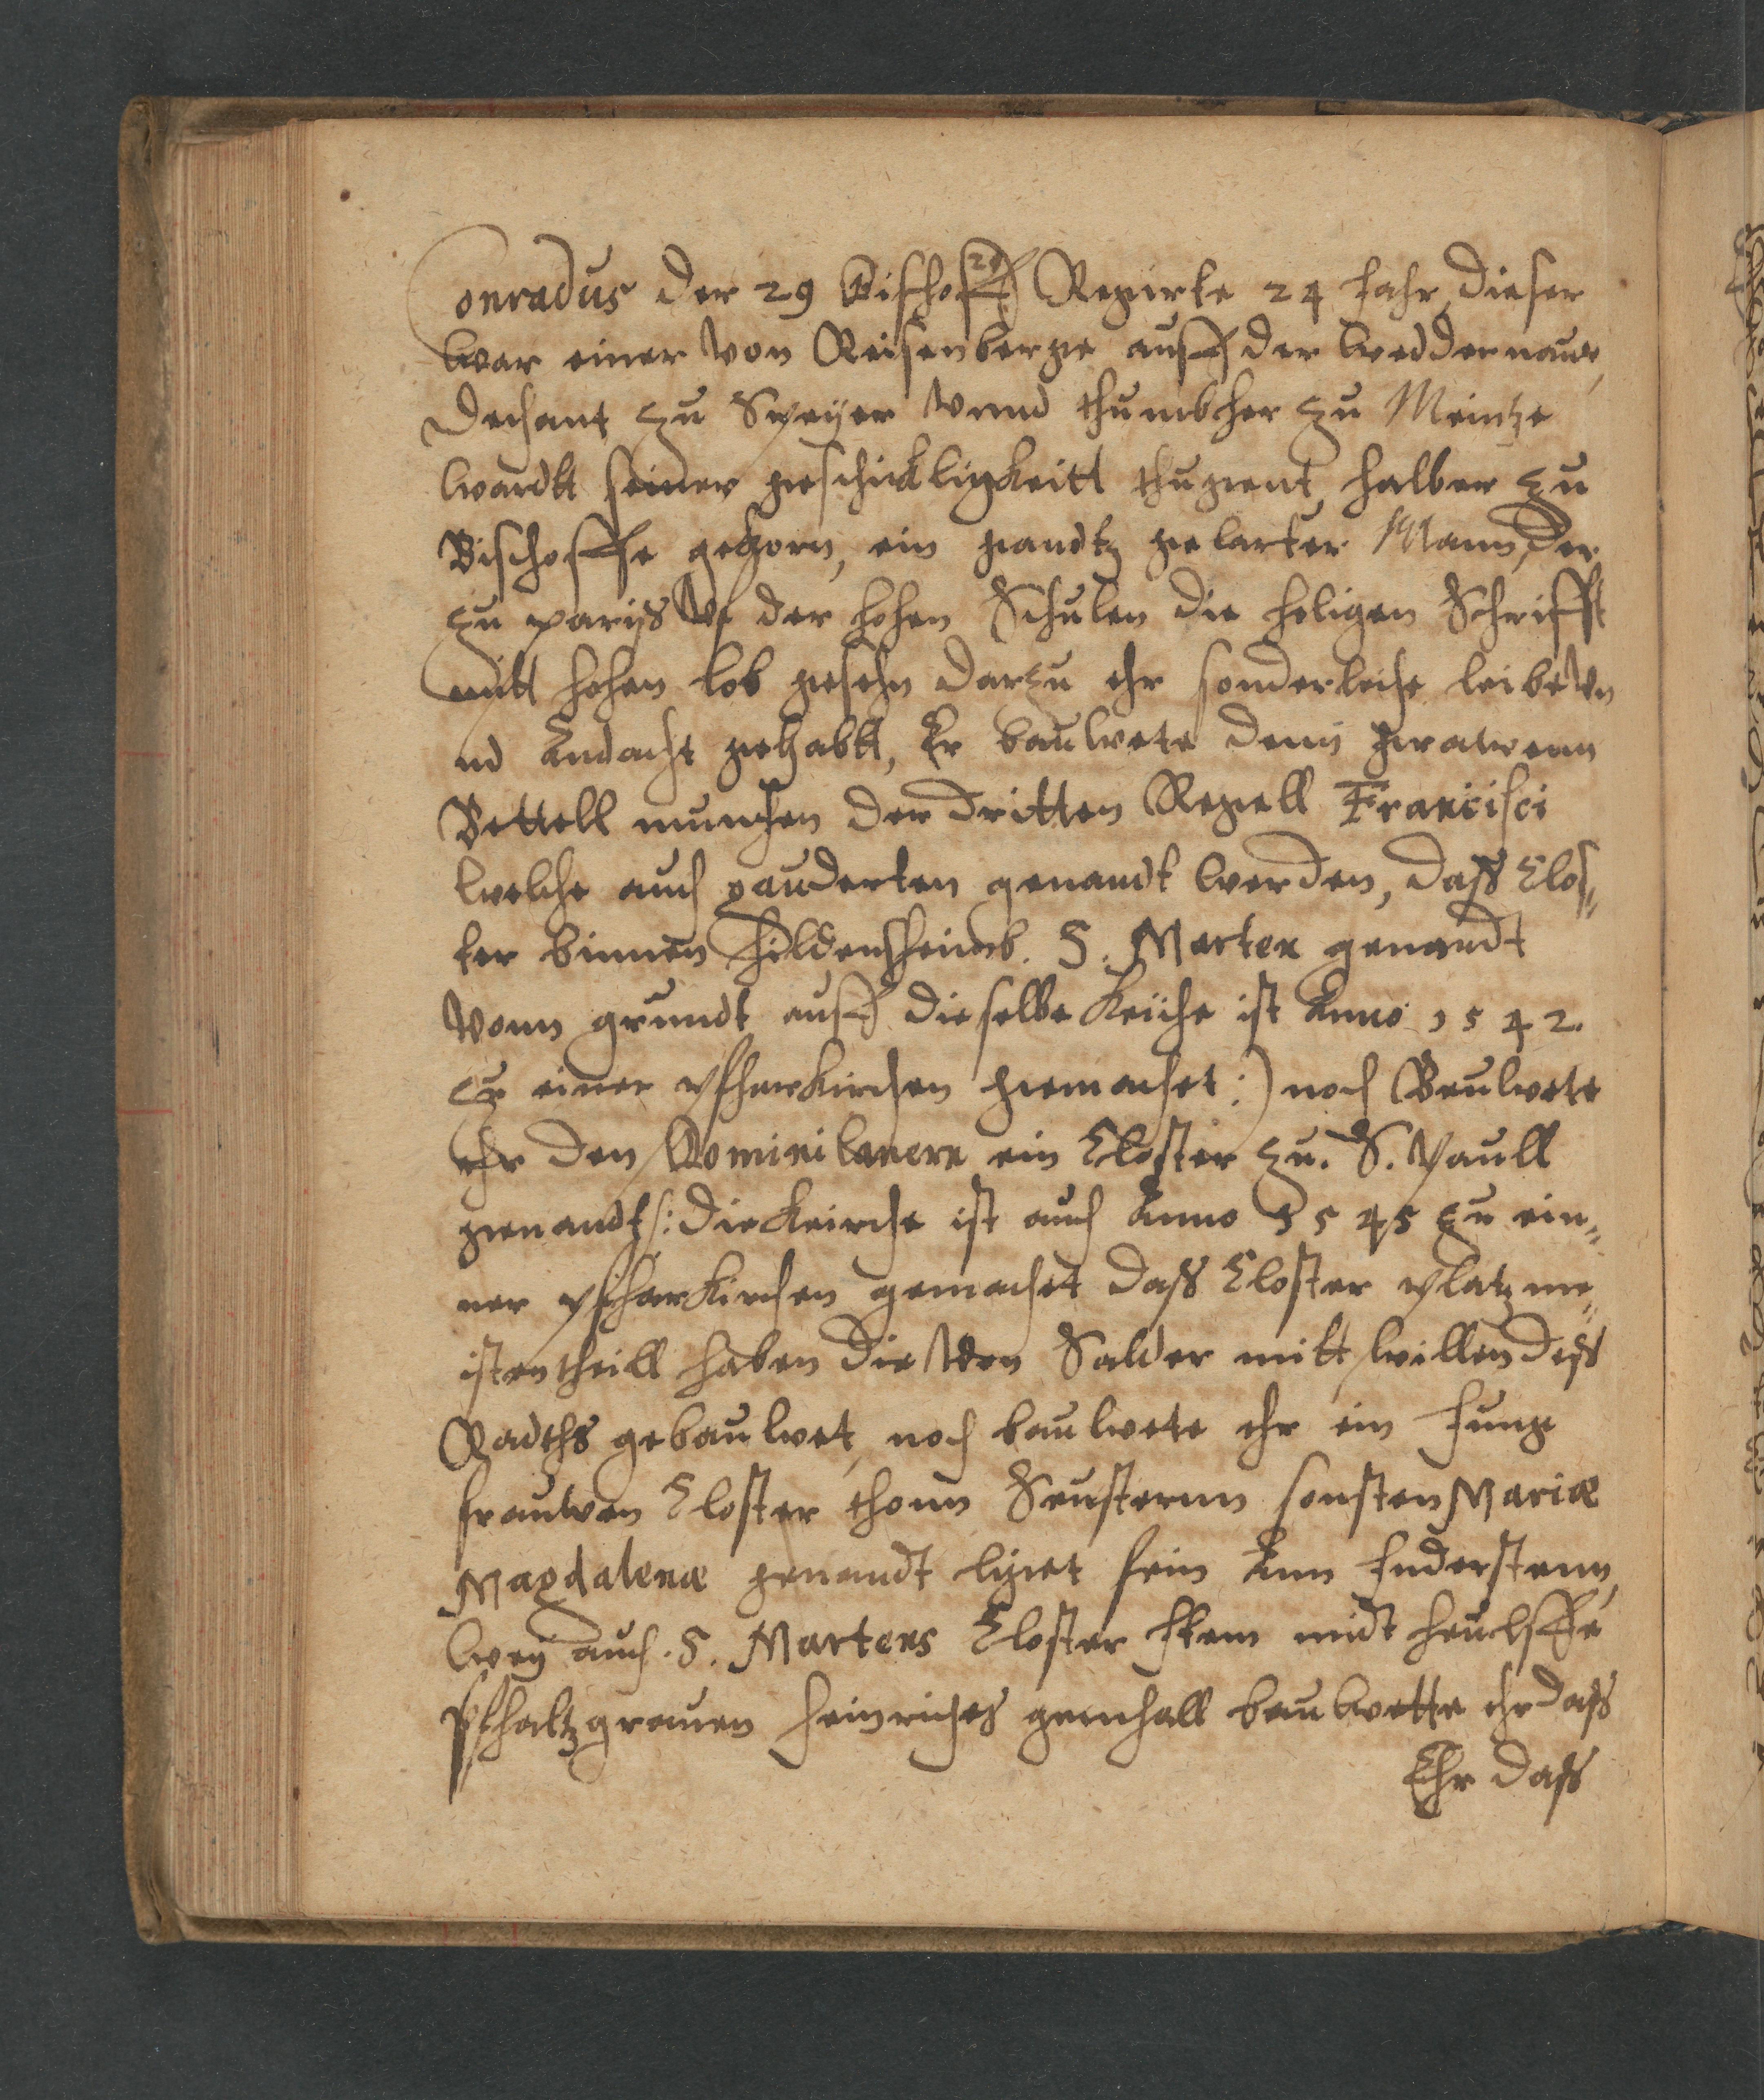 Conradus der 29 Bischoff Regirte 24 Jahr, dieser
war einer von Reisenberge auff der Weddernauw,
Dechant zu Speÿer vnnd thumbher zu Meintze
wardt seiner geschickligkeitt thugent halber zu
Bischoffe gekorn, ein gandtz gelarter Mann, der
zu pariß vf der hohen Schulen die heligen Schrifft
mitt hohen lob gesehn darzu ehr sonderleiche leibe vn
nd Andacht gehabtt, Er bauwete denn grawenn
Bettell munchen der dritten Regell Francisci
welche auch pauderten genandt werden, daß Clos„
ter binnen Hildensheimb. S. Marten genandt
vonn grundt auff dieselbe Keirche ist Anno 1542.
zu einer pfharkirchen gemachet :) noch Bauwete
ehr den Dominikanern ein Closter zu. S. Paull
genandt /: die Keirche ist auch Anno 1545 zu ein„
ner pfharkirchen gemachet daß Closter platz me„
istentheill haben die von Salder mitt willen deß
Radths gebauwet, noch bauwete ehr ein Jung
frauwen Closter thonn Seusternn sonsten Mariæ
Magdalenæ genandt liget fein Ann Enderstenn,
weg auch. S. Martens Closter Item midt heulffe
Pfhaltzgrauen Heinriches gemhall bauwette ehr daß
Ehr daß